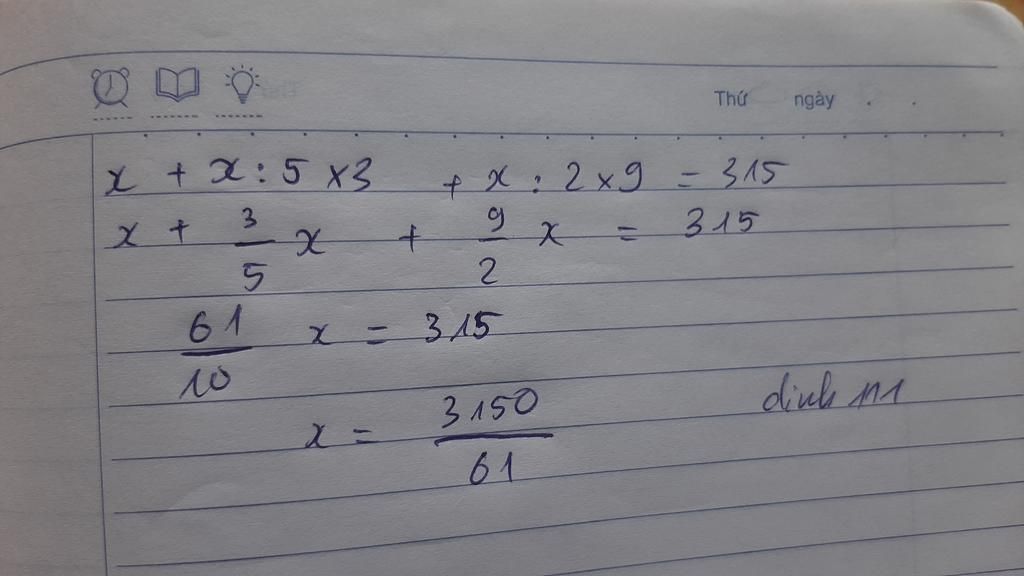 Thứ ngày . .
x + x : 5 x3 + x : 2 x 9 = 315
x + 3/5 x + 9/2 x = 315
61/10 x = 315
x = 3150/61
dinh 111